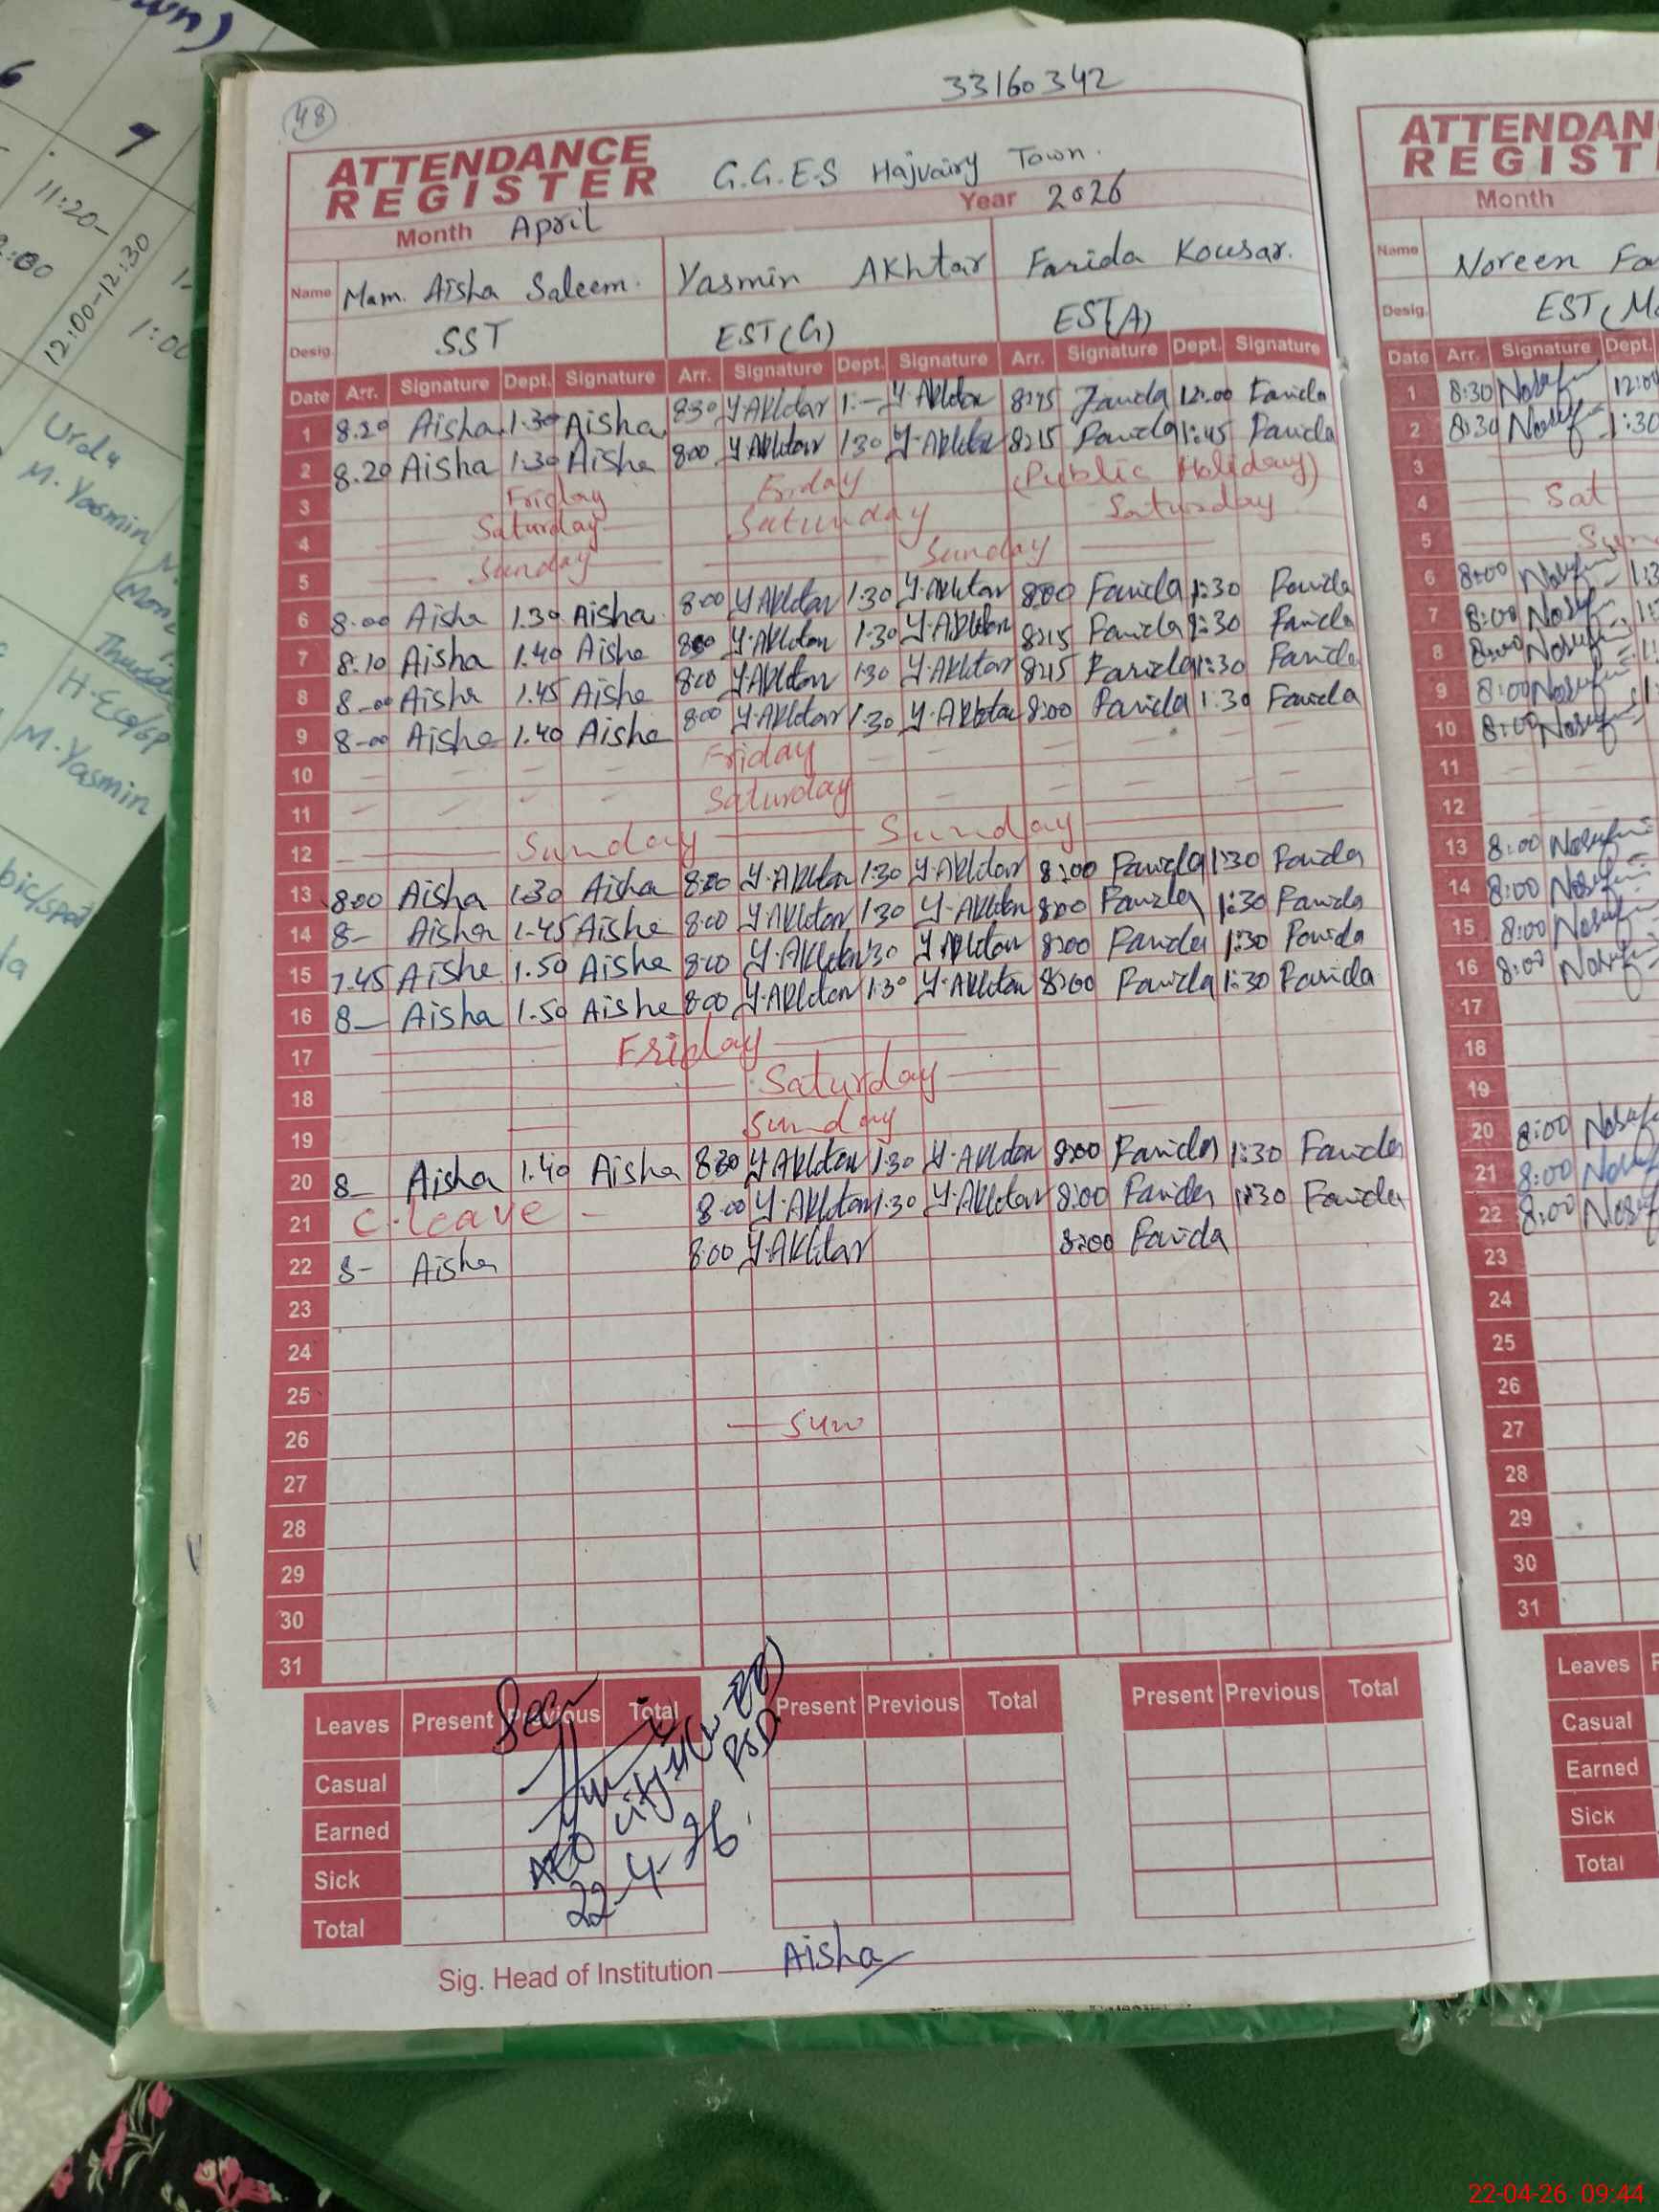 48
33160342
ATTENDANCE REGISTER G.G.E.S Hajvairy Town.
Month April Year 2026
Name Mam. Aisha Saleem. Yasmin Akhtar Farida Kousar.
Desig. SST EST(G) EST(A)
Date Arr. Signature Dept. Signature Arr. Signature Dept. Signature Arr. Signature Dept. Signature
1 8.20 Aisha 1.30 Aisha 8:30 Y.Akhtar 1:– Y.Akhtar 8:15 Farida 12:00 Farida
2 8.20 Aisha 1.30 Aisha 8:00 Y.Akhtar 1:30 Y.Akhtar 8:15 Farida 1:45 Farida
3 Friday Friday (Public Holiday)
4 Saturday Saturday Saturday
5 Sunday Sunday
6 8.00 Aisha 1.30 Aisha 8:00 Y.Akhtar 1:30 Y.Akhtar 8:00 Farida 1:30 Farida
7 8.10 Aisha 1.40 Aisha 8:00 Y.Akhtar 1:30 Y.Akhtar 8:15 Farida 1:30 Farida
8 8-00 Aisha 1.45 Aisha 8:00 Y.Akhtar 1:30 Y.Akhtar 8:15 Farida 1:30 Farida
9 8-00 Aisha 1.40 Aisha 8:00 Y.Akhtar 1:30 Y.Akhtar 8:00 Farida 1:30 Farida
10 Friday
11 Saturday
12 Sunday Sunday
13 8:00 Aisha 1:30 Aisha 8:00 Y.Akhtar 1:30 Y.Akhtar 8:00 Farida 1:30 Farida
14 8- Aisha 1-45 Aisha 8:00 Y.Akhtar 1:30 Y.Akhtar 8:00 Farida 1:30 Farida
15 7.45 Aisha 1.50 Aisha 8:00 Y.Akhtar 1:30 Y.Akhtar 8:00 Farida 1:30 Farida
16 8- Aisha 1.50 Aisha 8:00 Y.Akhtar 1:30 Y.Akhtar 8:00 Farida 1:30 Farida
17 Friday
18 Saturday
19 Sunday
20 8- Aisha 1.40 Aisha 8:00 Y.Akhtar 1:30 Y.Akhtar 8:00 Farida 1:30 Farida
21 C.leave - 8:00 Y.Akhtar 1:30 Y.Akhtar 8:00 Farida 1:30 Farida
22 8- Aisha 8:00 Y.Akhtar 8:00 Farida
23
24
25
26 Sun
27
28
29
30
31
Leaves Present Previous Total Present Previous Total Present Previous Total
Casual
Earned
Sick
Total
Seen
AEO City
22-4-26
Sig. Head of Institution Aisha
ATTENDAN
REGIST
Month
Name Noreen
Desig. EST
Date Arr. Signature Dept.
1 8:30 12:0
2 8:30 1:30
3
4 Sat
5
6 8:00
7 8:00
8 8:00
9 8:00
10 8:00
11
12
13 8:00
14 8:00
15 8:00
16 8:00
17
18
19
20 8:00
21 8:00
22 8:00
23
24
25
26
27
28
29
30
31
Leaves
Casual
Earned
Sick
Total
6
9
11:20-
12:00-12:30
1:00
Urdu
M. Yasmin
M. Yasmin
22-04-26 09:44